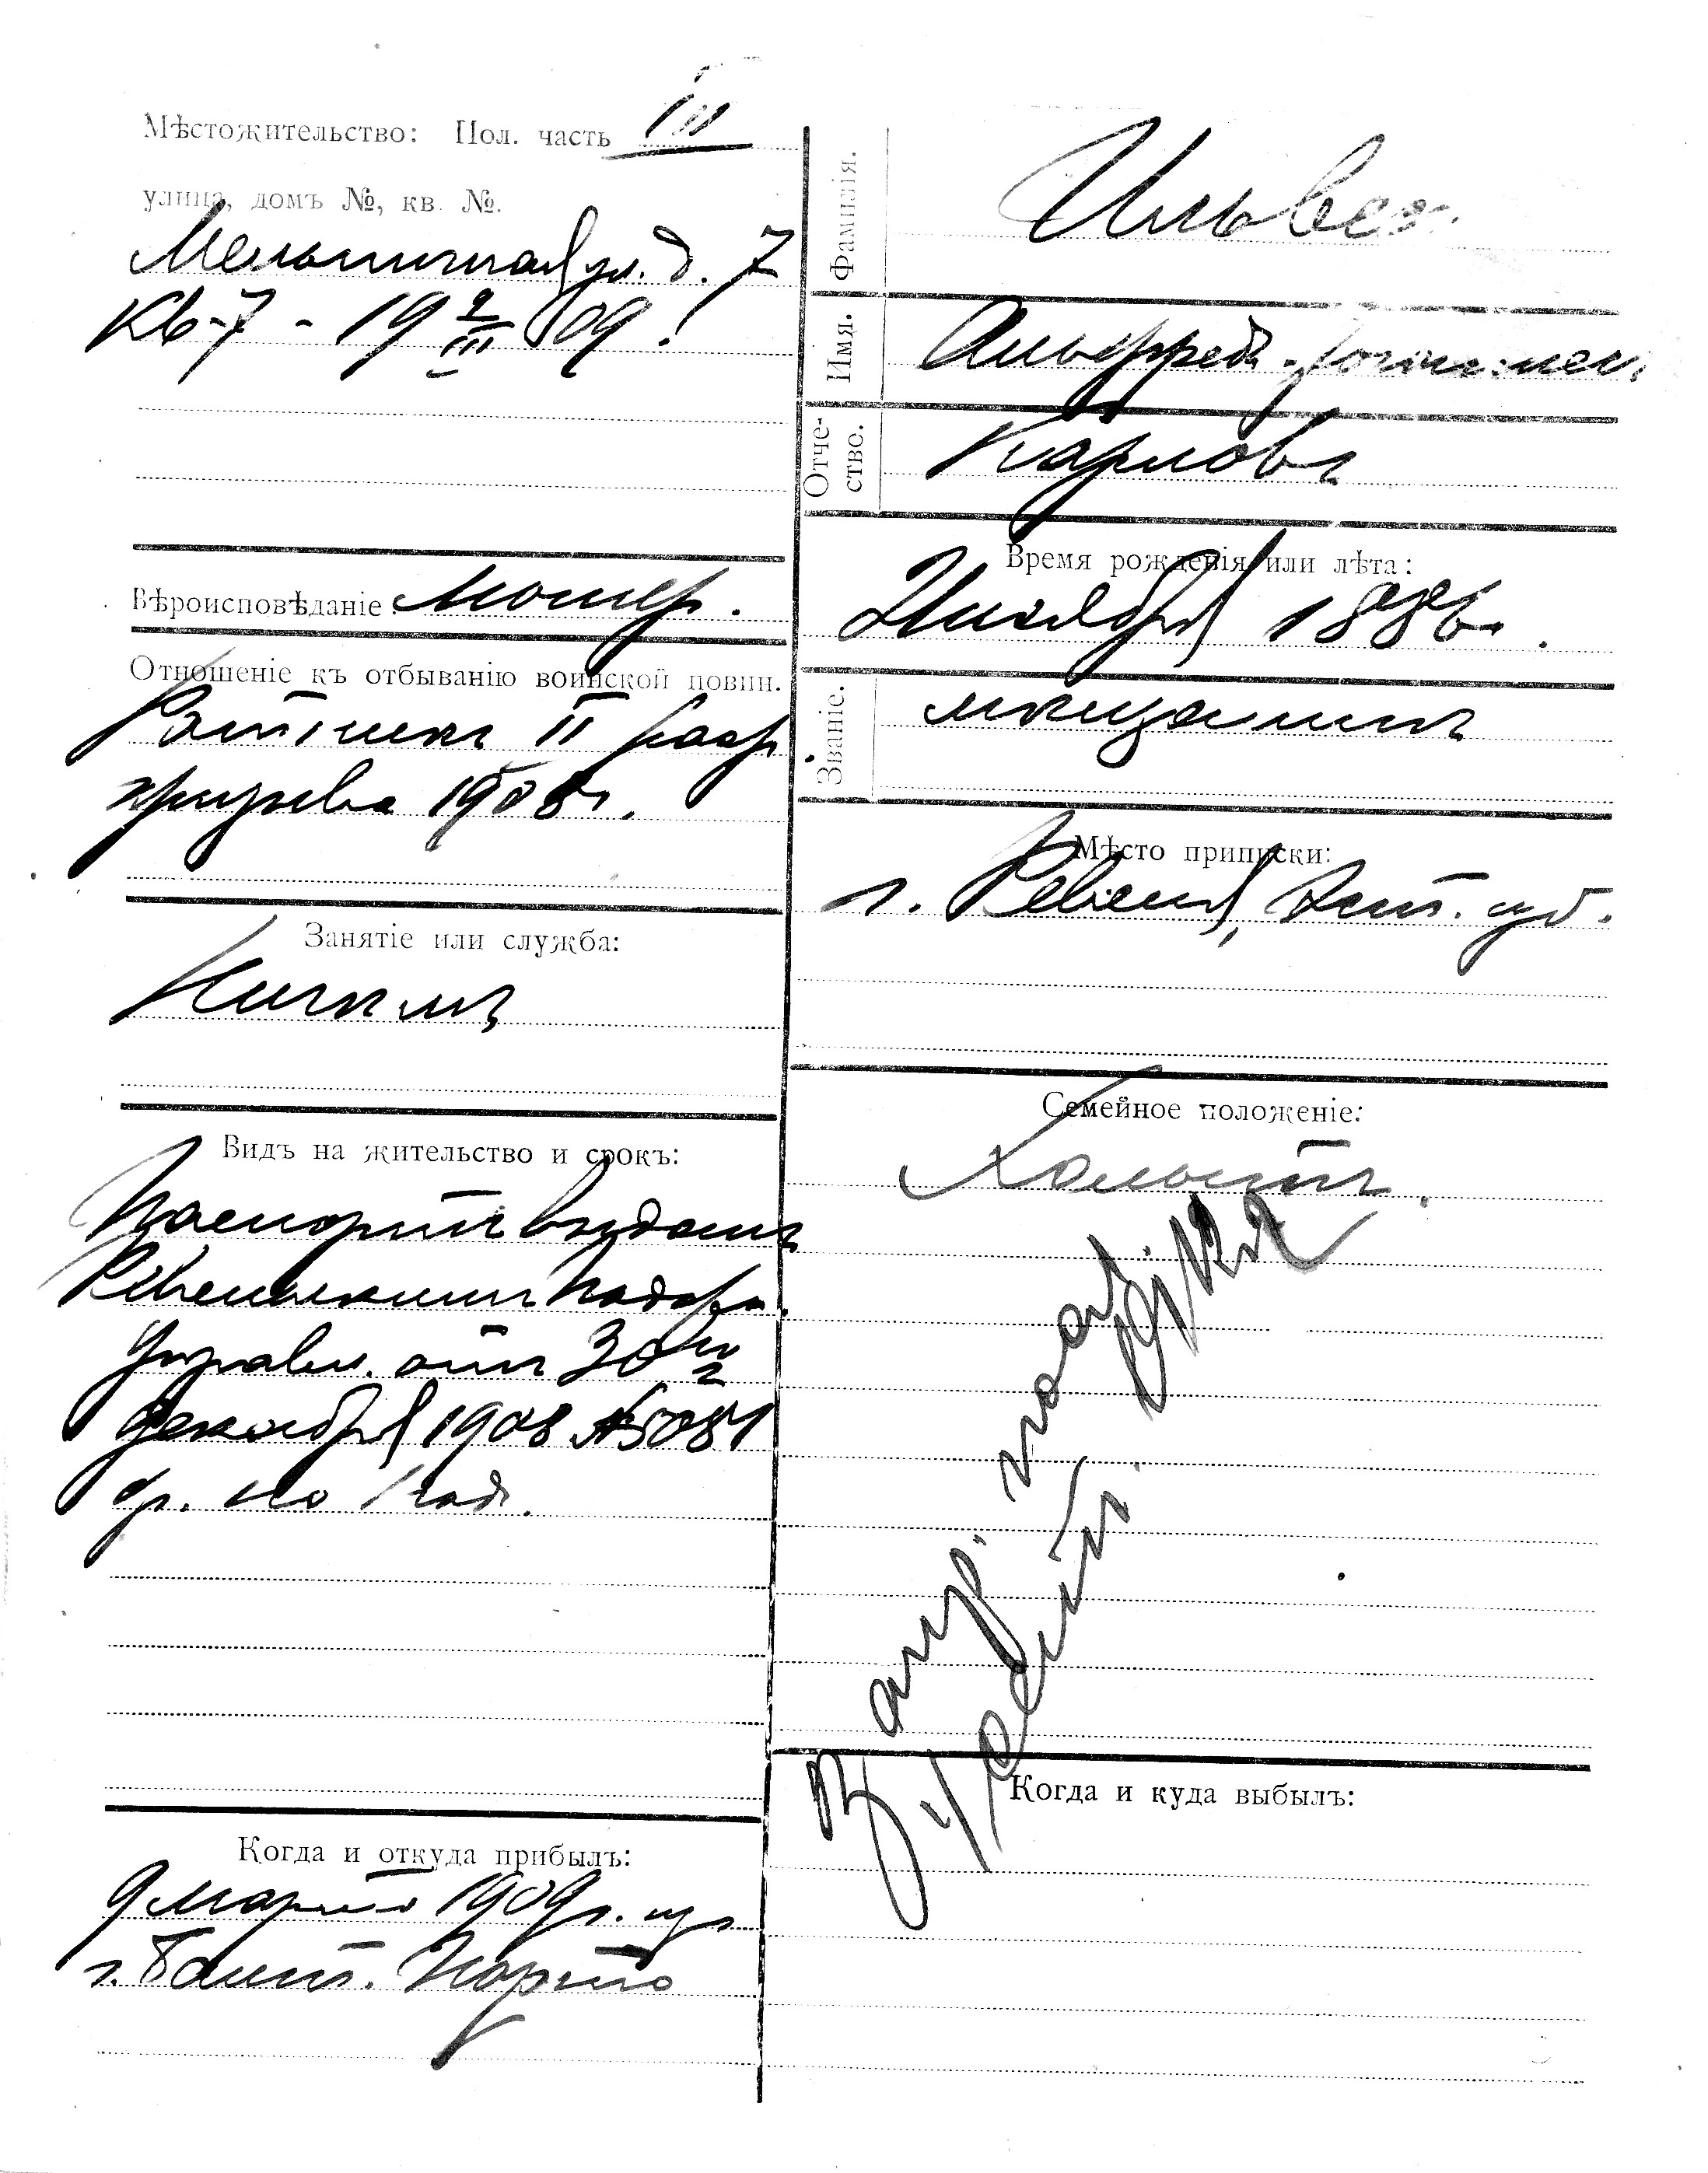 Мѣстожительство: Пол. часть III
улица, домъ №, кв. №.
Мельничная ул. д. 7
Кв-7 - 19 9/III 09.
Вѣроисповѣданіе: Лютер.
Отношеніе къ отбыванію воинской повин.
Ратникъ II разр
призыва 1908 г.
Занятіе или служба:
Видъ на жительство и срокъ:
Паспортъ выданъ
Ревельскимъ Подат.
Управл. отъ 30го
Декабря 1908 №5081
ср. на 1 годъ.
Когда и откуда прибылъ:
9 Марта 1909 г. изъ
г. Балт. Порта
Фамилія.
Ильвес
Имя.
Альфредъ
Отче-
ство.
Карловъ
Время рожденія или лѣта:
1886 г.
Званіе.
мѣщанинъ
Мѣсто приписки:
г. Ревеля, Эст. губ.
Семейное положеніе:
Холостъ.
Когда и куда выбылъ: